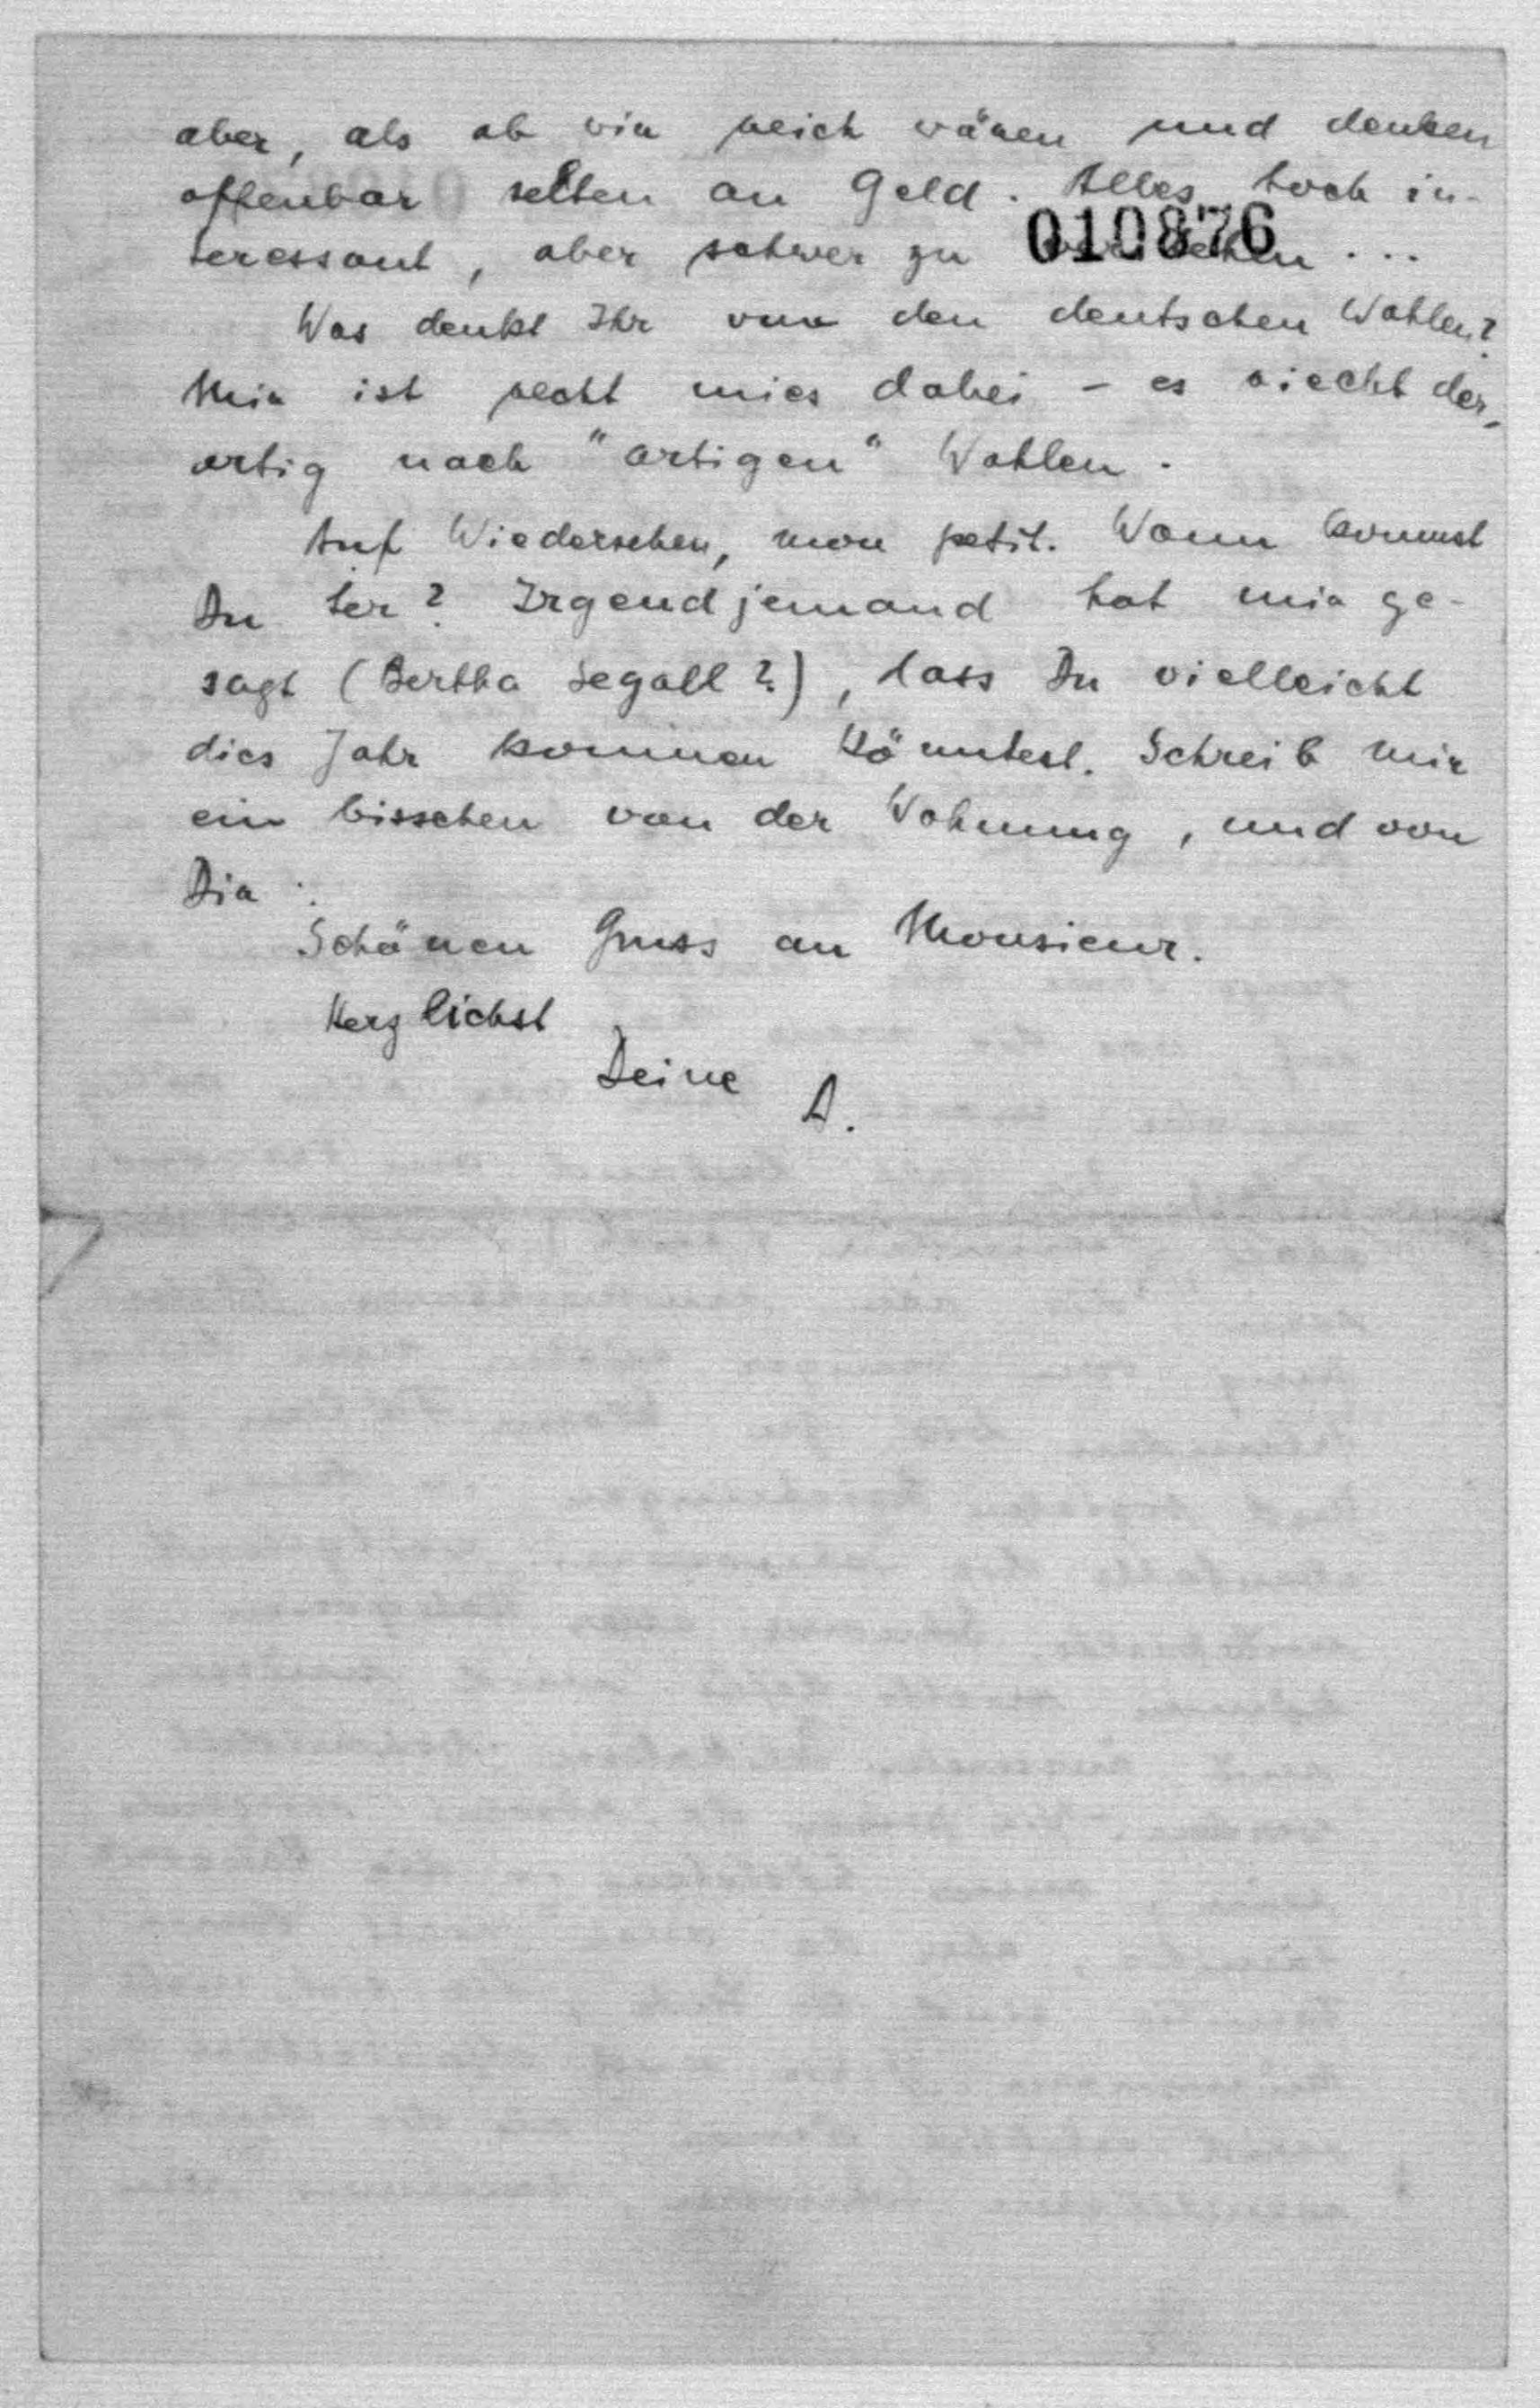 aber, als ob wir reich wären und denken
offenbar selten an Geld. Alles hoch in-
teressant, aber schwer zu verstehen ...
010876
Was denkt Ihr von den deutschen Wahlen?
Mir ist recht mies dabei - es riecht der-
artig nach "artigen" Wahlen.
Auf Wiedersehen, mon petit. Wann kommst
Du her? Irgend jemand hat mir ge-
sagt (Bertha Segall?), dass Du vielleicht
dies Jahr kommen könntest. Schreib mir
ein bisschen von der Wohnung, und von
Dir.
Schönen Gruss an Monsieur.
Herzlichst
Deine
A.